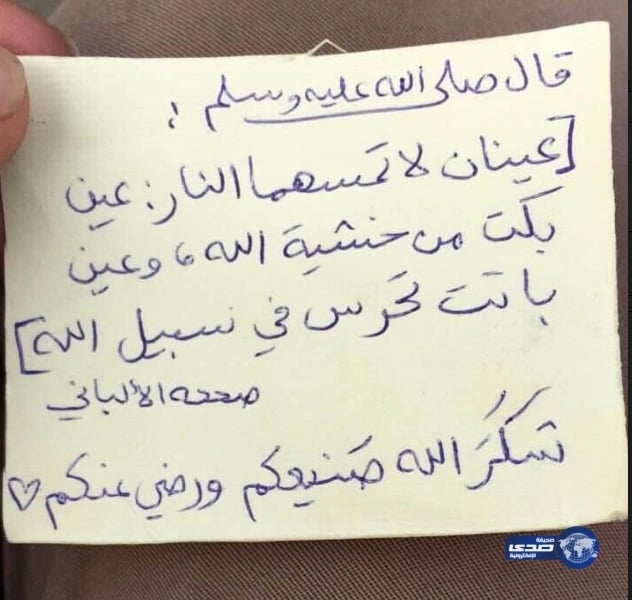 قال صلى الله عليه وسلم :
[عينان لا تمسهما النار: عين
بكت من خشية الله، وعين
باتت تحرس في سبيل الله]
صححه الألباني
شكَرَ الله صَنيعكم ورضي عنكم♡
صحيفة
صدى
الإلكترونية